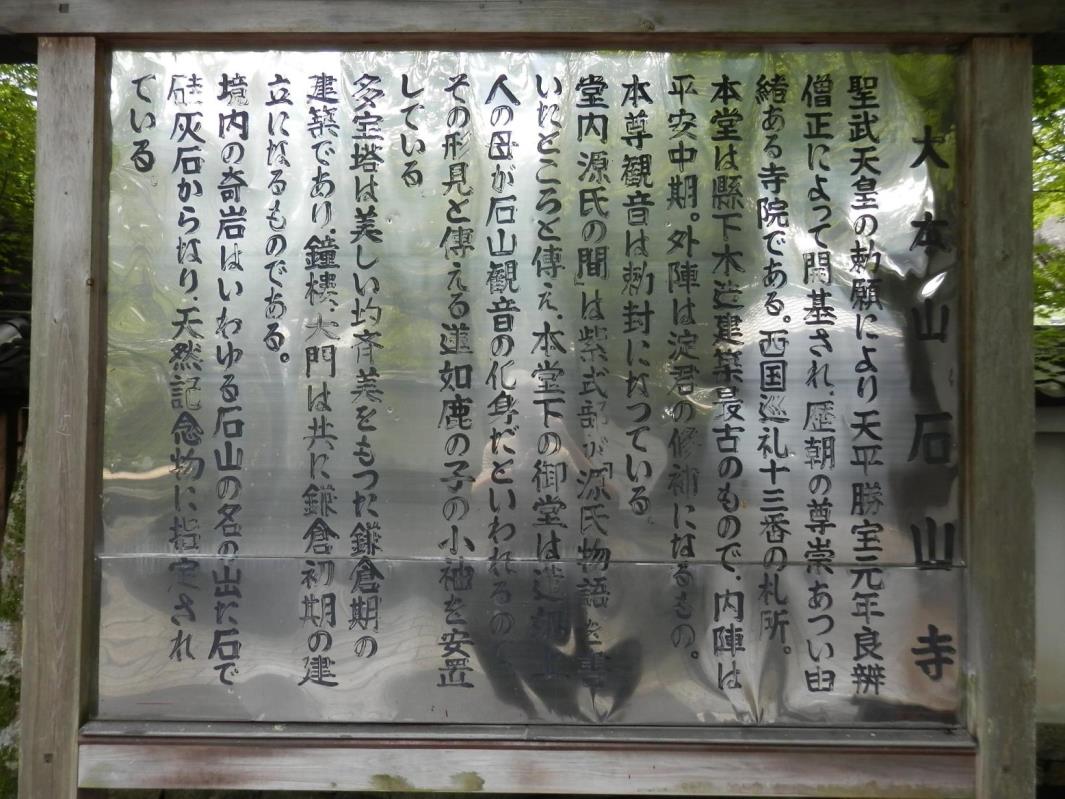 大本山石山寺
聖武天皇の勅願により天平勝宝元年良辨
僧正によって開基され、歴朝の尊崇あつい由
緒ある寺院である。西国巡礼十三番の札所。
本堂は縣下木造建築最古のもので、内陣は
平安中期。外陣は淀君の修補になるもの。
本尊観音は勅封になっている
堂内源氏の間』は紫式部が『源氏物語』を書
いたところと傳え、本堂下の御堂は蓮如上
人の母が石山観音の化身だといわれるので
その形見と傳える蓮如鹿の子の小袖を安置
している
多宝塔は美しい均斉美をもつた鎌倉期の
建築であり、鐘楼、大門は共に鎌倉初期の建
立になるものである。
境内の奇岩はいわゆる石山の名の出た石で
硅灰石からなり、天然記念物に指定され
ている